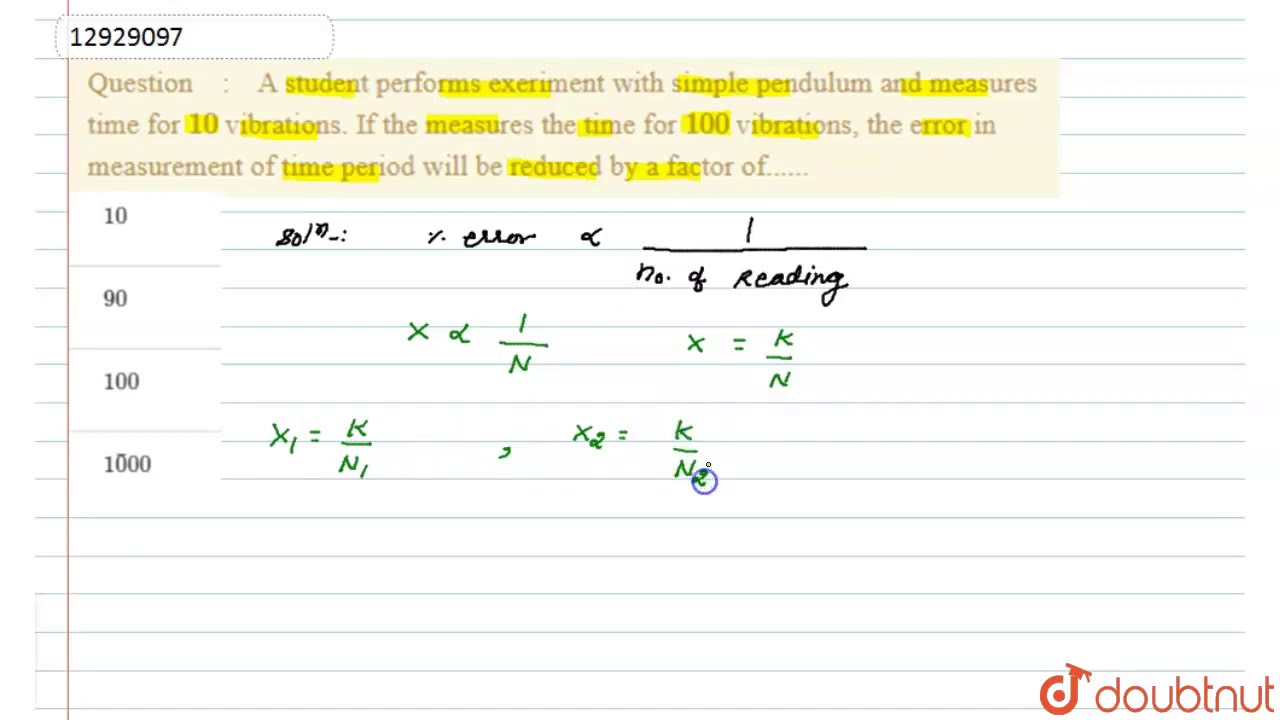 12929097
Question : A student performs exeriment with simple pendulum and measures
time for 10 vibrations. If the measures the time for 100 vibrations, the error in
measurement of time period will be reduced by a factor of......
10
90
100
1000
Solⁿ-: % error ∝ 1 / no. of Reading
X ∝ 1 / N X = K / N
X₁ = K / N₁ , X₂ = K / N₂
doubtnut